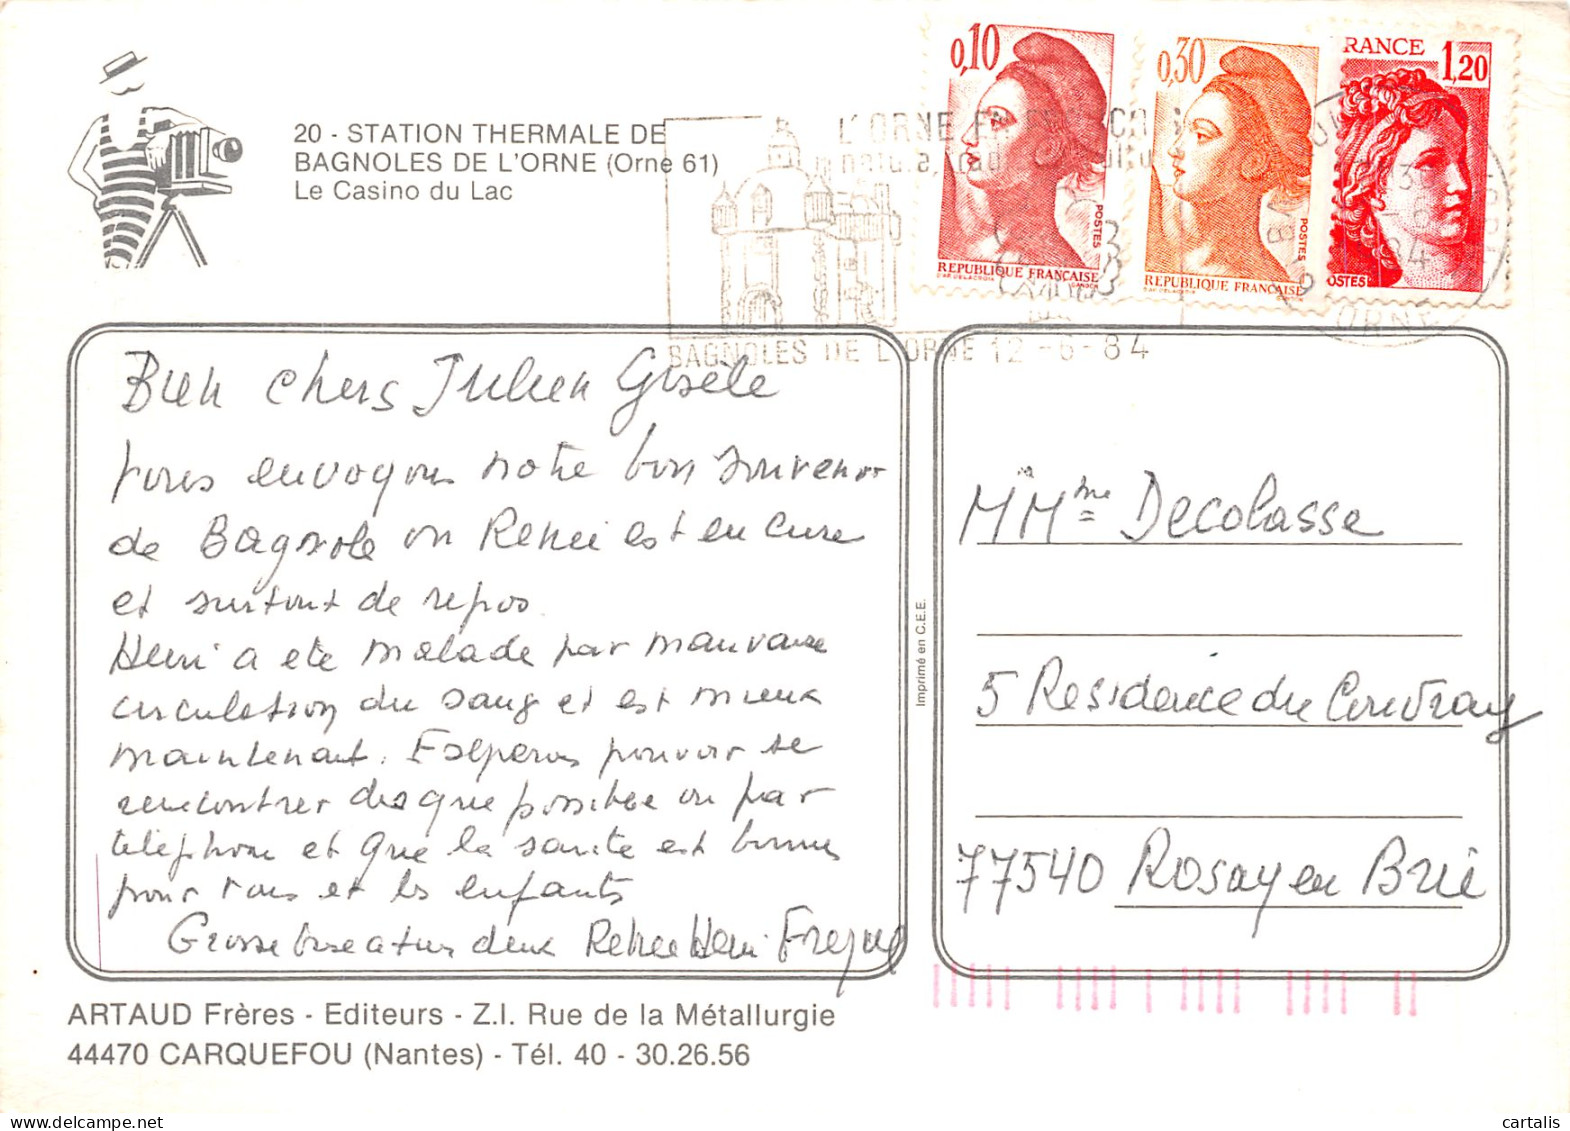 20 - STATION THERMALE DE
BAGNOLES DE L'ORNE (Orne 61)
Le Casino du Lac
0,10
REPUBLIQUE FRANÇAISE
POSTES
0,30
REPUBLIQUE FRANÇAISE
POSTES
RANCE
1,20
OSTES
L'ORNE
BAGNOLES DE L'ORNE 12-6-84
ORNE
Bien chers Julien Gisèle
vous envoyons notre bon souvenir
de Bagnole ou Renée est en cure
et surtout de repos.
Henri a ete malade par mauvaise
circulation du sang et est mieux
maintenant. Espérons pouvoir se
rencontrer des que possible ou par
téléphone et que la sante est bonne
pour vous et les enfants
Grosse bise a tus deux Renée Henri
Imprimé en C.E.E.
M Mme Decolasse
5 Residence du
77540 Rosay en Brie
ARTAUD Frères - Editeurs - Z.I. Rue de la Métallurgie
44470 CARQUEFOU (Nantes) - Tél. 40 - 30.26.56
cartalis